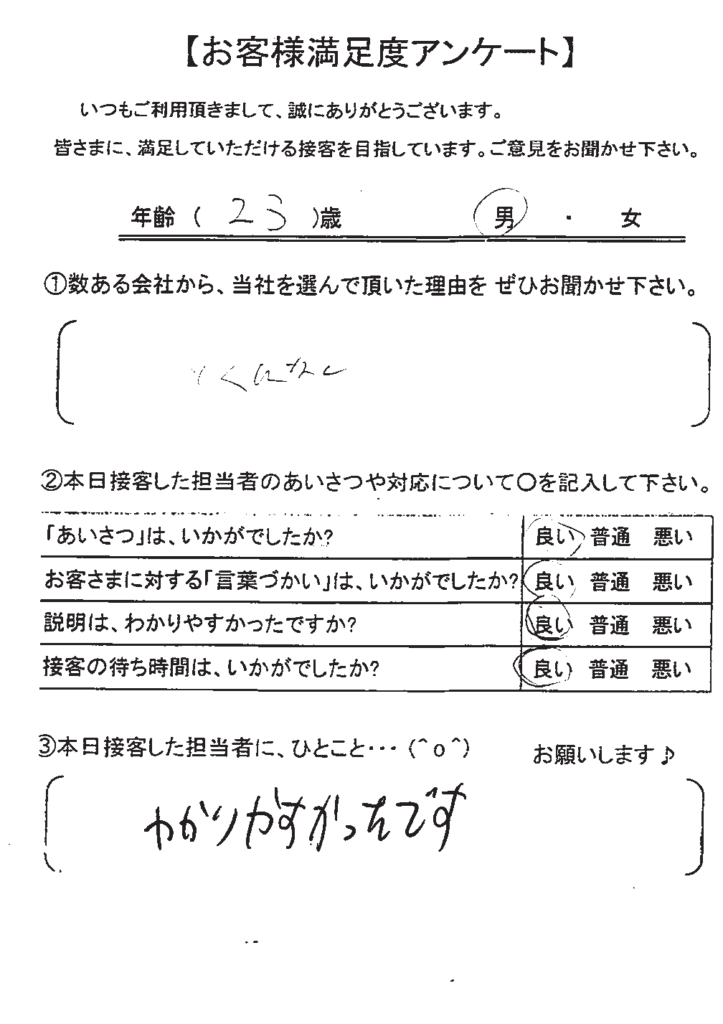 【お客様満足度アンケート】
いつもご利用頂きまして、誠にありがとうございます。
皆さまに、満足していただける接客を目指しています。ご意見をお聞かせ下さい。
年齢（ 23 ）歳 男 ・ 女
①数ある会社から、当社を選んで頂いた理由を ぜひお聞かせ下さい。
②本日接客した担当者のあいさつや対応について〇を記入して下さい。
「あいさつ」は、いかがでしたか? 良い 普通 悪い
お客さまに対する「言葉づかい」は、いかがでしたか? 良い 普通 悪い
説明は、わかりやすかったですか? 良い 普通 悪い
接客の待ち時間は、いかがでしたか? 良い 普通 悪い
③本日接客した担当者に、ひとこと・・・（^o^） お願いします♪
わかりやすかったです